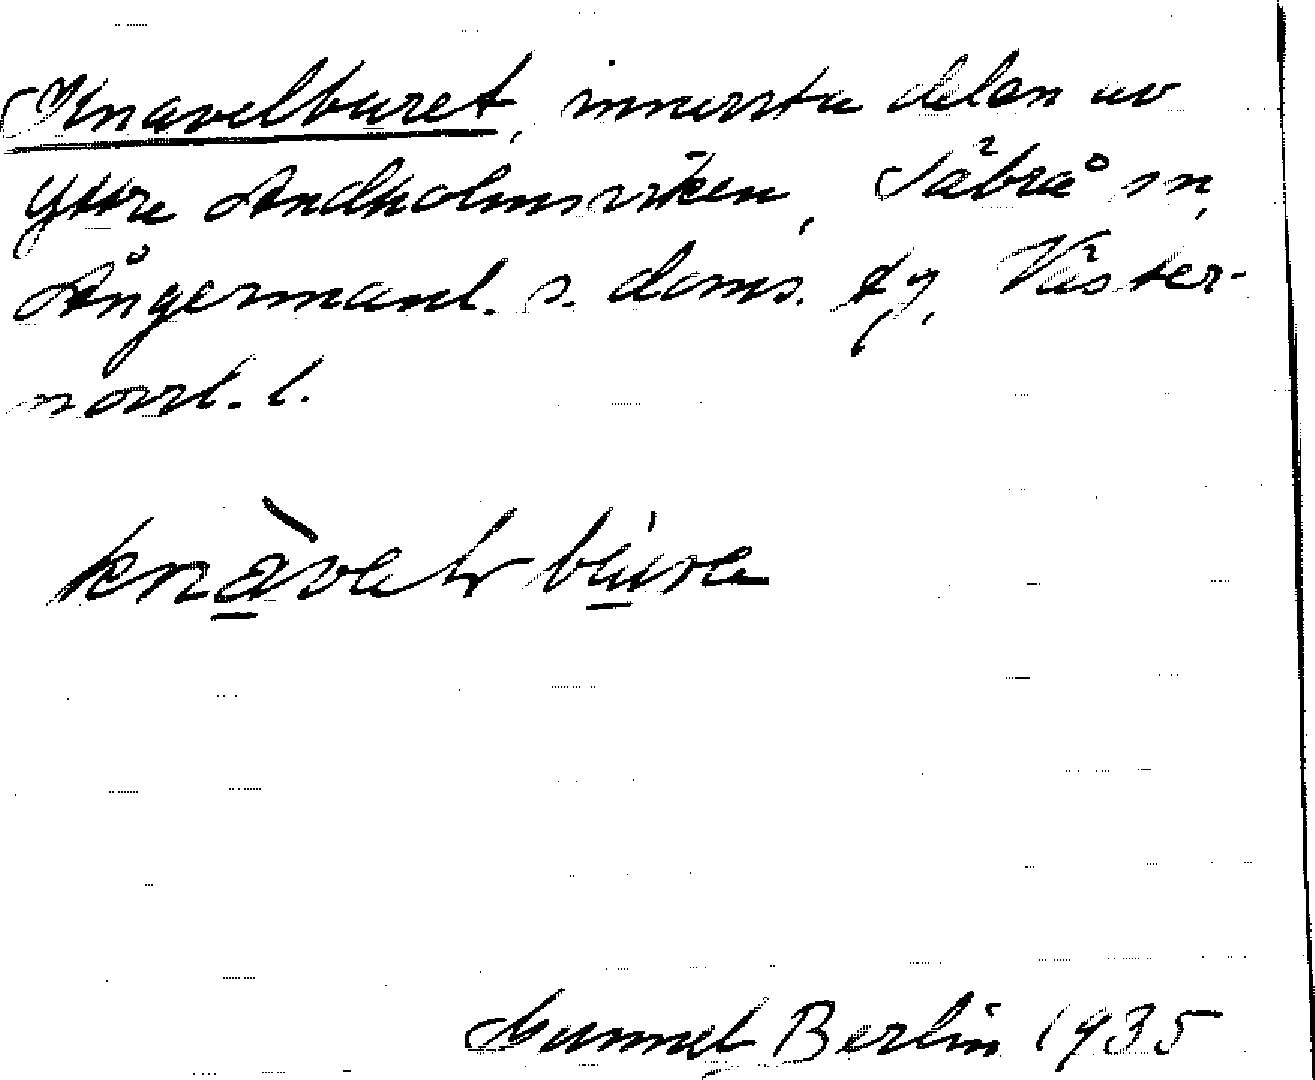 Knavelburet, innersta delen av
Yttre Andholmsviken, Säbrå sn,
Ångermanl. s. doms. tg, Väster-
norrl. l.
Gunnel Berlin 1935